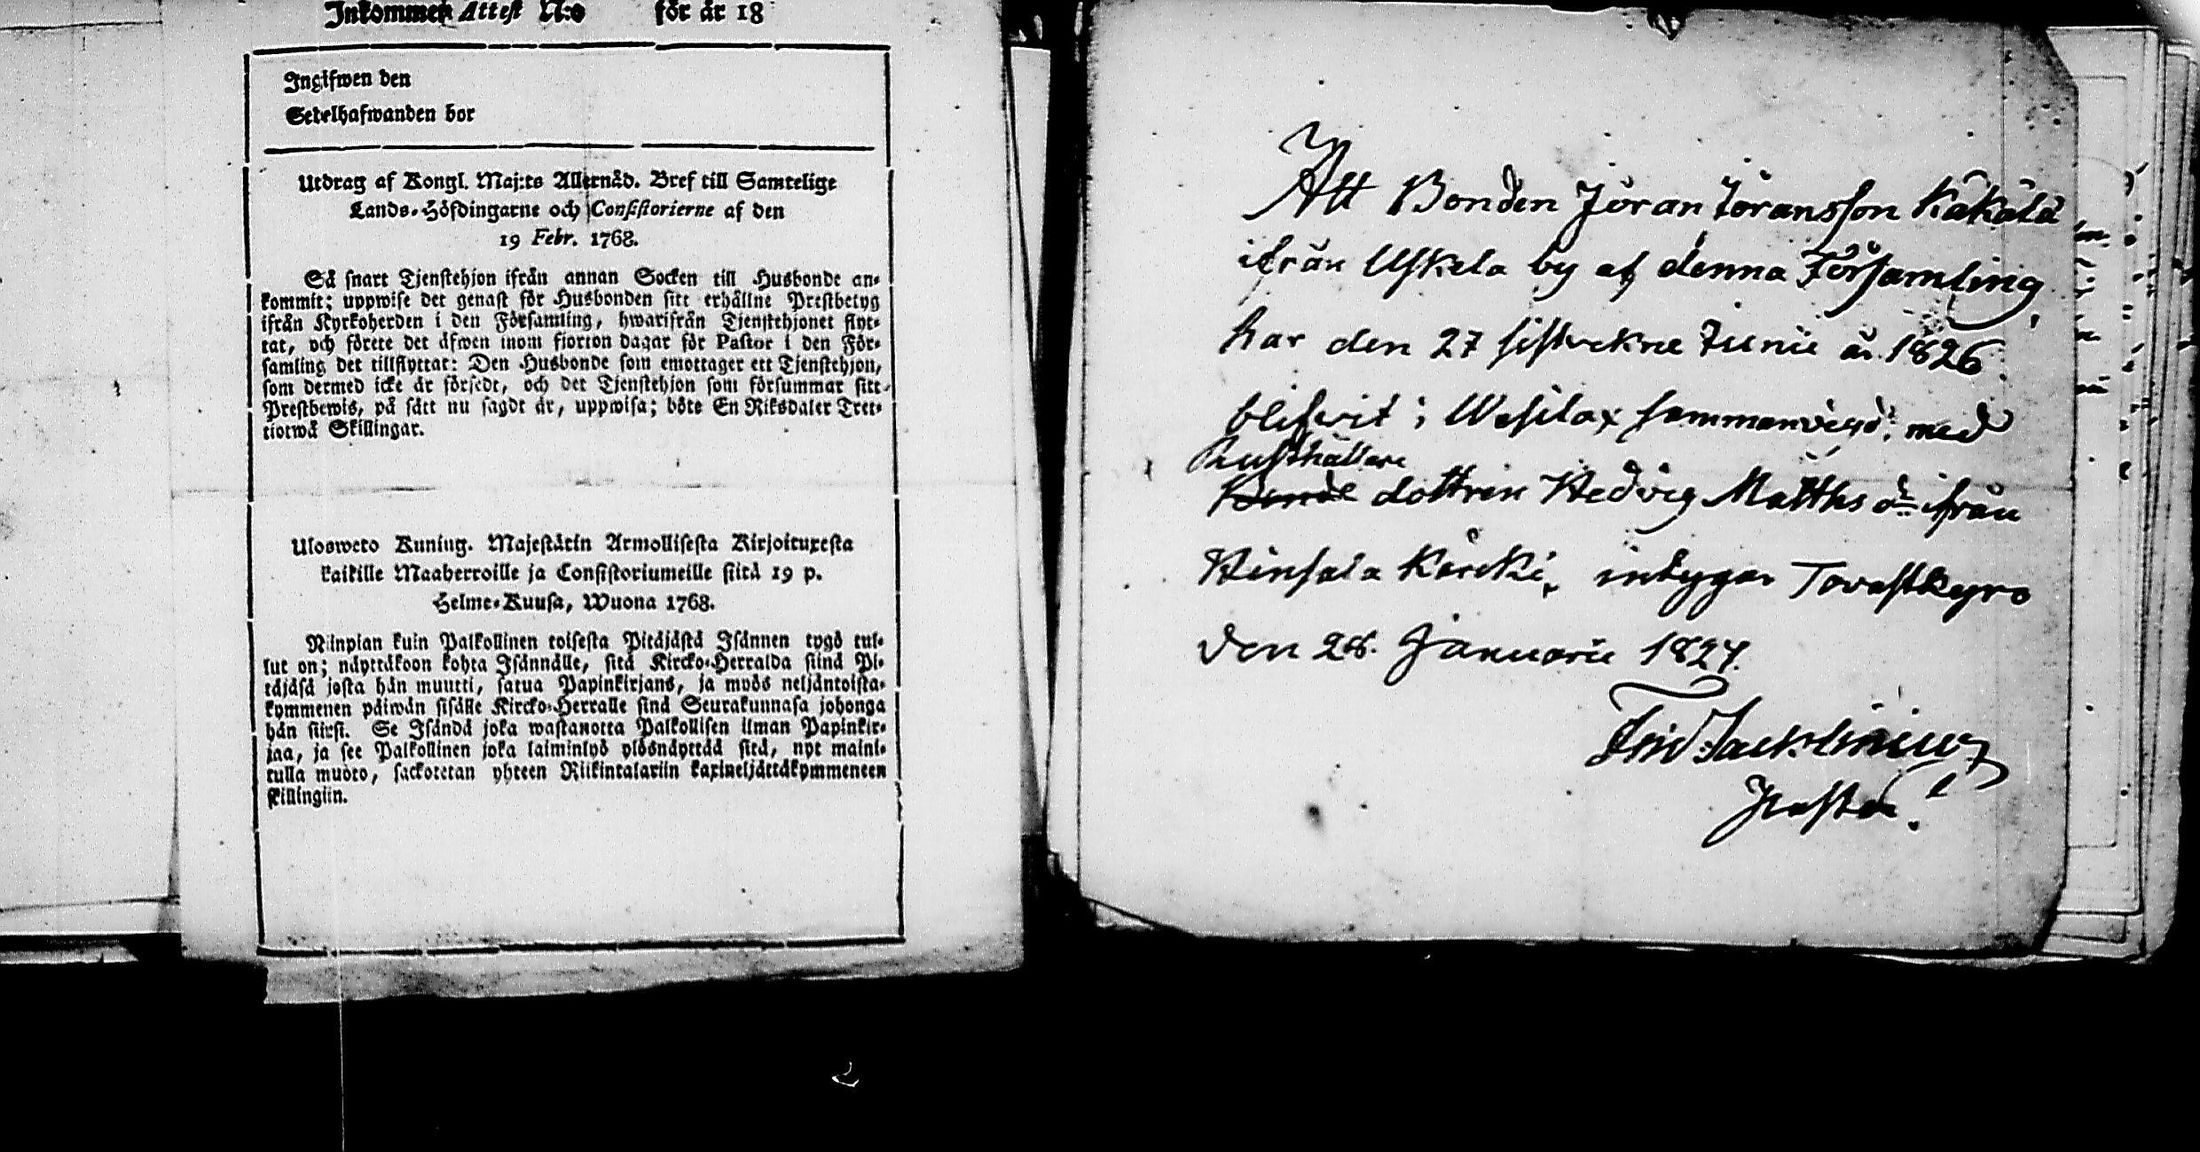 Inkommen Attest N:o för år 18
Ingifwen den
Sedelhafwanden bor
Utdrag af Kongl. Maj:ts Allernåd. Bref till Samtelige
Lands-Höfdingarne och Consistorierne af den
19 Febr. 1768.
Så snart Tjenstehjon ifrån annan Socken till Husbonde an-
kommit; uppwise det genast för Husbonden sitt erhållne Prestbetyg
ifrån Kyrkoherden i den Församling, hwarifrån Tjenstehjonet flyt-
tat, och förete det äfwen inom fjorton dagar för Pastor i den För-
samling det tillflyttat: Den Husbonde som emottager ett Tjenstehjon,
som dermed icke är försedt, och det Tjenstehjon som försummar sitt
Prestbewis, på sätt nu sagdt är, uppwisa; böte En Riksdaler Tret-
tiotwå Skillingar.
Ulosweto Kuning. Majestätin Armollisesta Kirjoituxesta
kaikille Maaherroille ja Consistoriumeille siitä 19 p.
Helme-Kuusa, Wuona 1768.
Niinpian kuin Palkollinen toisesta Pitäjästä Isännen tygö tul-
lut on; näyttäkoon kohta Isännälle, sitä Kircko-Herralda siinä Pi-
täjäsä josta hän muutti, satua Papinkirjans, ja myös neljäntoista-
kymmenen päiwän sisälle Kircko-Herralle siinä Seurakunnasa johonga
hän siirsi. Se Isändä joka wastanotta Palkollisen ilman Papinkir-
jaa, ja see Palkollinen joka laiminlyö ylösnäyttää sitä, nyt maini-
tulla muoto, sackotetan yhteen Riikintalariin kaxineljättäkymmeneen
skillingiin.
Att Bonden Jöran Jöransson Kakala
ifrån Uskela by af denna Församling
har den 27 sistvekne Junii år 1826
blifvit i Wesilax sammanvigd med
Rusthållare
Bonde dottren Hedvig Matths dr ifrån
Hinsala Kärcki, intygar Tavastkyro
den 28. Januarii 1827.
Pastor.